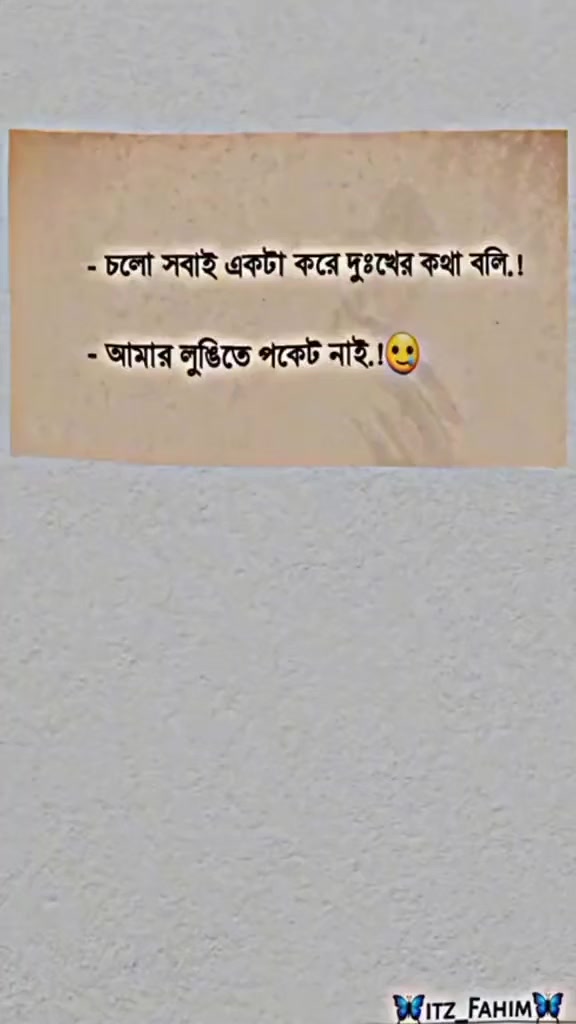 - চলো সবাই একটা করে দুঃখের কথা বলি.!
- আমার লুঙিতে পকেট নাই.!🥲
🦋ITZ_FAHIM🦋